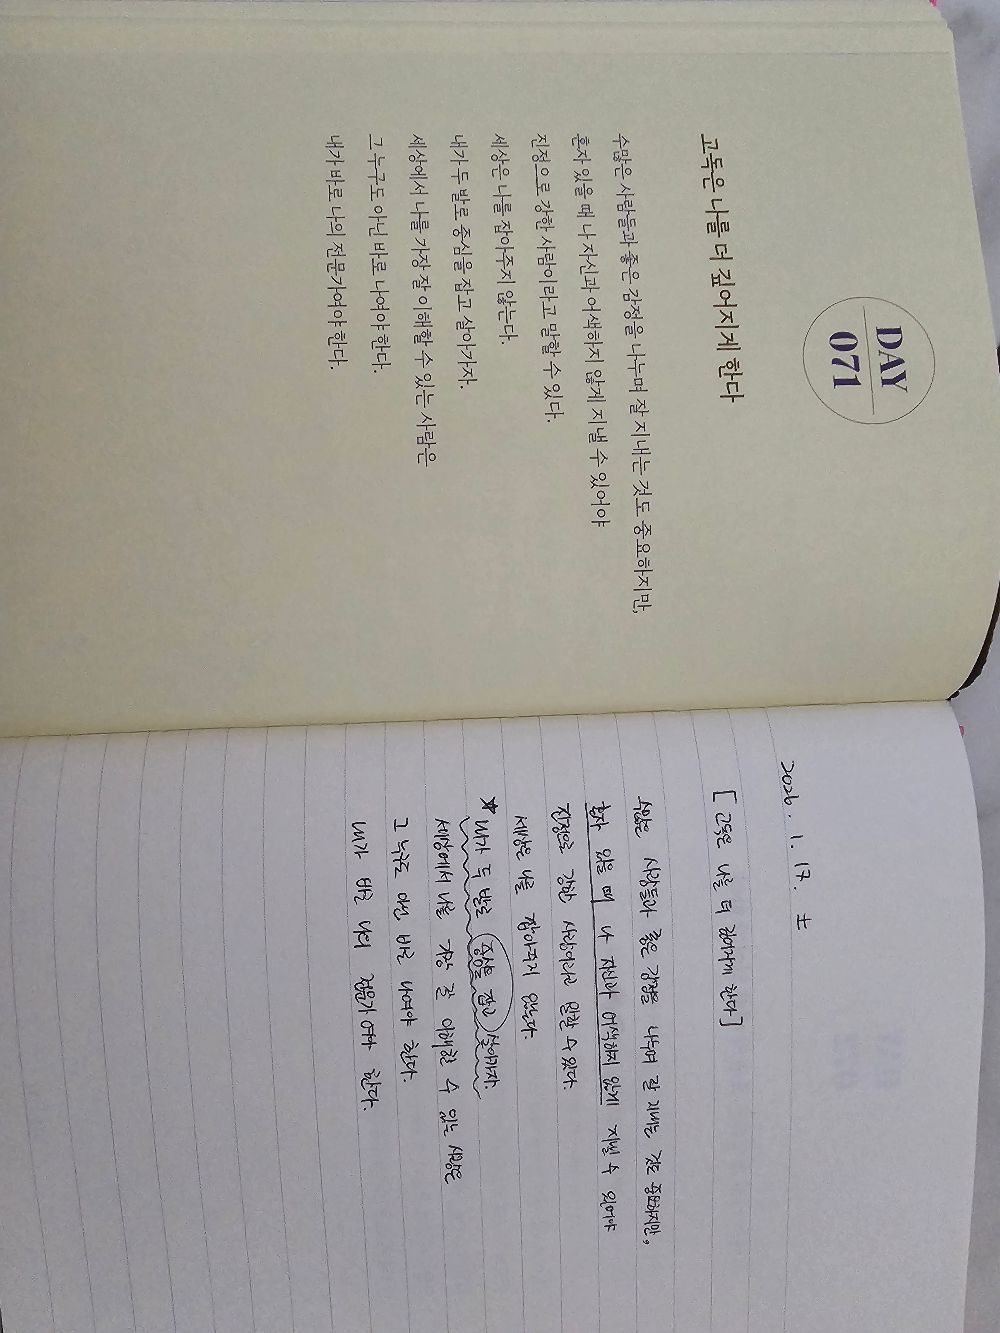 DAY
071
고독은 나를 더 깊어지게 한다
수많은 사람들과 좋은 감정을 나누며 잘 지내는 것도 중요하지만,
혼자 있을 때 나 자신과 어색하지 않게 지낼 수 있어야
진정으로 강한 사람이라고 말할 수 있다.
세상은 나를 잡아주지 않는다.
내가 두 발로 중심을 잡고 살아가자.
세상에서 나를 가장 잘 이해할 수 있는 사람은
그 누구도 아닌 바로 나여야 한다.
내가 바로 나의 전문가여야 한다.
2026. 1. 17. 土
[고독은 나를 더 깊어지게 한다]
수많은 사람들과 좋은 감정을 나누며 잘 지내는 것도 중요하지만,
혼자 있을 때 나 자신과 어색하지 않게 지낼 수 있어야
진정으로 강한 사람이라고 말할 수 있다.
세상은 나를 잡아주지 않는다.
★내가 두 발로 중심을 잡고 살아가자.
세상에서 나를 가장 잘 이해할 수 있는 사람은
그 누구도 아닌 바로 나여야 한다.
내가 바로 나의 전문가여야 한다.